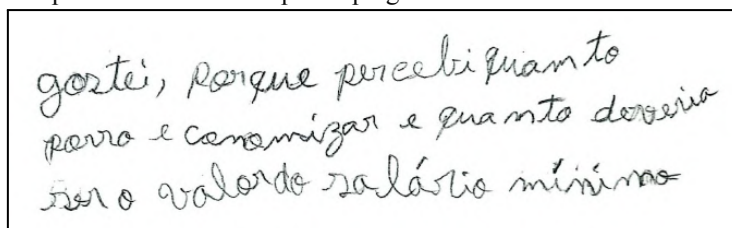 gostei, porque percebi quamto
posso economizar e quanto deveria
ser o valor do salário mínimo